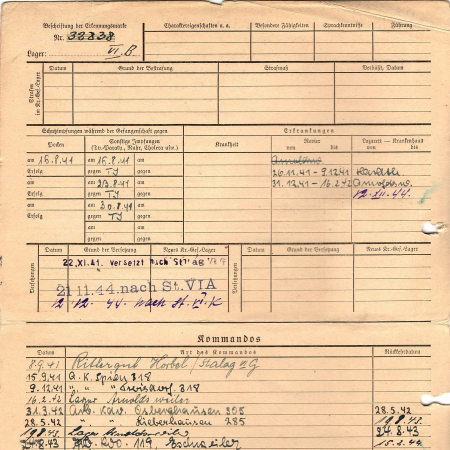 Beschriftung der Erkennungsmarke
Nr. 32838
Lager: VI B
Charaktereigenschaften u. a.
Besondere Fähigkeiten
Sprachkenntnisse
Führung
Strafen im Kr.-Gef.-Lager
Datum
Grund der Bestrafung
Strafmaß
Verbüßt, Datum
Schutzimpfungen während der Gefangenschaft gegen
Pocken
Sonstige Impfungen
(Ty.-Paraty., Ruhr, Cholera usw.)
am 15.8.41 am 15.8.41 am
Erfolg gegen TY gegen
am am 23.8.41 am
Erfolg gegen TY gegen
am am 30.8.41 am
Erfolg gegen TY gegen
am am
gegen gegen
Erkrankungen
Krankheit
Revier
von bis
Lazarett - Krankenhaus
von bis
26.11.41 - 9.12.41
31.12.41 - 16.2.42 Arnoldsw.
12.XII.44.
Versetzungen
Datum
Grund der Versetzung
Neues Kr.-Gef.-Lager
Datum
Grund der Versetzung
Neues Kr.-Gef.-Lager
22.XI.41. versetzt nach Stalag
21.11.44. nach St. VIA
2.12.44. nach St. VI K
Kommandos
Datum
Art des Kommandos
Rückkehrdatum
8.9.41 Rittergut Horbel / Stalag VI G
15.9.41 A.K. 318
9.12.41 " " Troisdorf 318
16.2.42 Lager Arnoldsweiler
31.3.42 Arb. Kdo. Osberghausen 305 28.5.42
28.5.42 " " Rieberhausen 285 19.8.43.
19.8.43. Lager Arnoldsweiler 24.8.43
24.8.43 119, Eschweiler 15.2.44